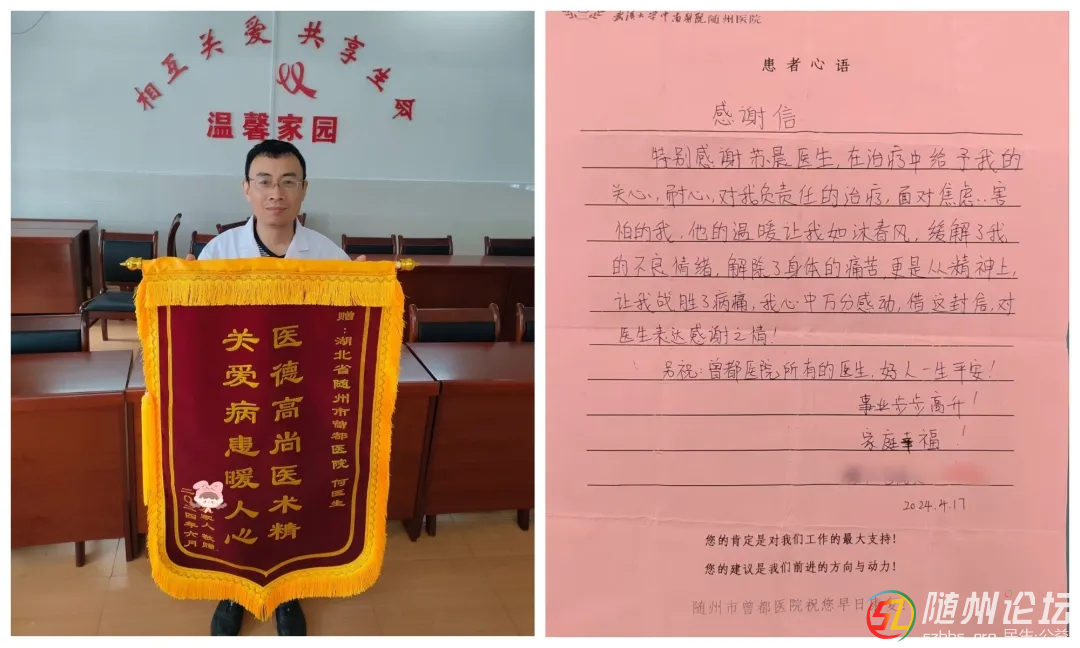 相互关爱共享生命
温馨家园
赠：湖北省随州市曾都医院 何医生
医德高尚医术精
关爱病患暖人心
家人 敬赠
二〇二四年六月
武汉大学中南医院随州医院
患者心语
感谢信
特别感谢苏晨医生，在治疗中给予我的
关心，耐心，对我负责任的治疗，面对焦虑、害
怕的我，他的温暖让我如沐春风，缓解了我
的不良情绪，解除了身体的痛苦，更是从精神上，
让我战胜了病痛，我心中万分感动，借这封信，对
医生表达感谢之情！
另祝：曾都医院所有的医生，好人一生平安！
事业步步高升！
家庭幸福！
2024.4.17
您的肯定是对我们工作的最大支持！
您的建议是我们前进的方向与动力！
随州市曾都医院祝您早日
随州论坛
szbbs.org 民生·公益